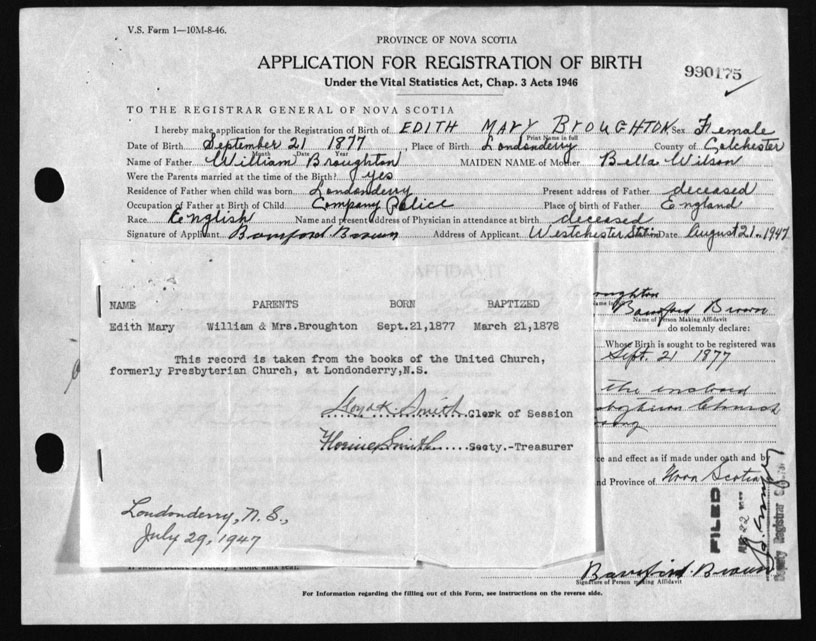 V.S. Form 1—10M-8-46.
PROVINCE OF NOVA SCOTIA
APPLICATION FOR REGISTRATION OF BIRTH
Under the Vital Statistics Act, Chap. 3 Acts 1946
990175
TO THE REGISTRAR GENERAL OF NOVA SCOTIA
I hereby make application for the Registration of Birth of EDITH MARY BROUGHTON Sex Female
Print Name in full
Date of Birth September 21 1877, Place of Birth Londonderry County of Colchester
Month Date Year
Name of Father William Broughton MAIDEN NAME of Mother Bella Wilson
Were the Parents married at the time of Birth? yes
Residence of Father when child was born Londonderry Present address of Father deceased
Occupation of Father at Birth of Child Company Police Place of birth of Father England
Race English Name and present address of Physician in attendance at birth deceased
Signature of Applicant Bamford Brown Address of Applicant Westchester Station Date August 21, 1947
NAME PARENTS BORN BAPTIZED
Edith Mary William & Mrs.Broughton Sept.21,1877 March 21,1878
This record is taken from the books of the United Church,
formerly Presbyterian Church, at Londonderry,N.S.
Smith Clerk of Session
Smith Secty.-Treasurer
Londonderry, N.S.,
July 29, 1947
oughton
Bamford Brown
Name of Person Making Affidavit
do solemnly declare:
Whose Birth is sought to be registered was
Sept. 21 1877
the
Church
ce and effect as if made under oath and by
nd Province of Nova Scotia
FILED
22
Deputy Registrar
Bamford Brown
Signature of Person making Affidavit
For Information regarding the filling out of this Form, see instructions on the reverse side.